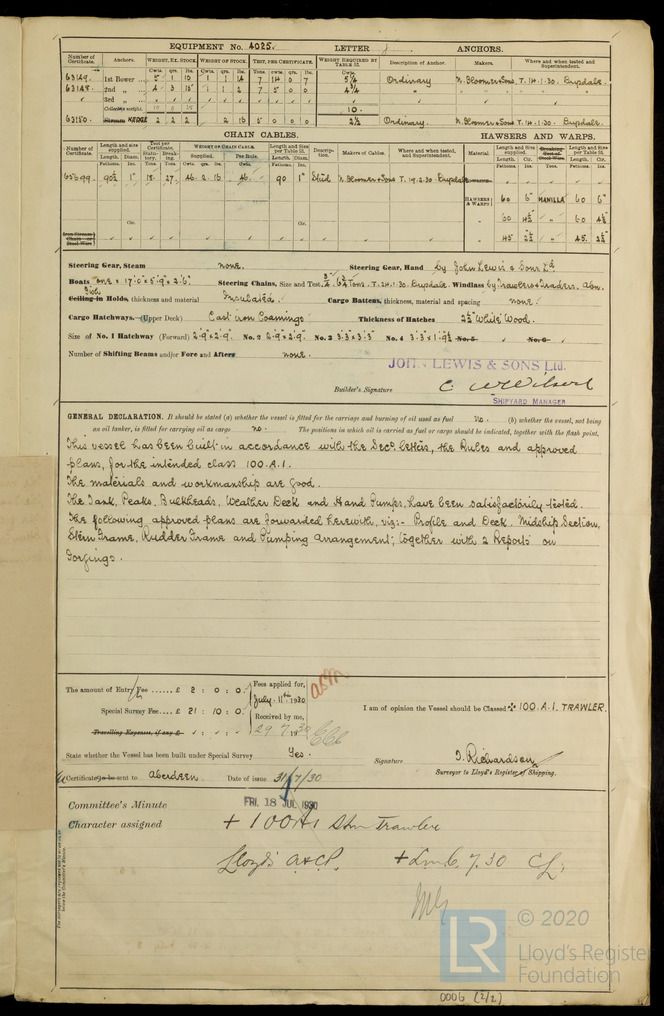 EQUIPMENT No. 4025. LETTER j ANCHORS.
Number of Certificate. Anchors. WEIGHT, EX. STOCK. WEIGHT OF STOCK. TEST, PER CERTIFICATE. WEIGHT REQUIRED BY TABLE 31. Description of Anchor. Makers. Where and when tested and Superintendent.
Cwts. qrs. lbs. Cwts. qrs. lbs. Tons. cwts. qrs. lbs. Cwts.
63149. 1st Bower 5 1 10 1 1 14 7 14 0 7 5¼ Ordinary N. Bloomer & Sons T. 14.1.30. Cupdale.
63148. 2nd „ 4 3 15 1 1 2 7 5 0 0 4¾ „ „ „
3rd „
Collective weight. 10.
63150. Stream KEDGE 2 2 2 2 16 5 0 0 0 2½ Ordinary. N. Bloomer & Sons T. 14.1.30. Cupdale.
CHAIN CABLES. HAWSERS AND WARPS.
Number of Certificate. Length and size supplied. Test per Certificate. WEIGHT OF CHAIN CABLE. Length and Size per Table 31. Description. Makers of Cables. Where and when tested, and Superintendent. Material. Length and size supplied. Length and size per Table 31.
Length. Diam. Statutory. Breaking. Supplied. Per Rule. Length. Diam. Length. Cir. Length. Cir.
90½ 1" 18. 27. 46. 2. 16 46. 90 1" Stud N. Bloomer & Sons T. 19.2.30. Cupdale
HAWSERS & WARPS 60 6" MANILLA 60 6"
60 4½ „ 60 4½
45 2½ „ 45. 2½
Steering Gear, Steam none. Steering Gear, Hand by John Lewis & Sons Ld.
Boats one × 17'.0" × 5'.9" × 2'.6" Steering Chains, Size and Test, ¾" 6¾ Tons. T. 24.1.30. Cupdale. Windlass by Trawlers & Traders. Abn.
Ceiling in Fish Holds, thickness and material Insulated. Cargo Battens, thickness, material and spacing none.
Cargo Hatchways.—(Upper Deck) Cast iron Coamings Thickness of Hatches 2½" White Wood.
Size of No. 1 Hatchway (Forward) 2'.9" × 2'.9". No. 2 2'.9" × 2'.9". No. 3 3'.3" × 3'.3 No. 4 3'.3 × 1'.9½ No. 5 No. 6
Number of Shifting Beams and/or Fore and Afters none.
JOHN LEWIS & SONS Ltd.
Builder's Signature C. W. Wilson
SHIPYARD MANAGER
GENERAL DECLARATION. It should be stated (a) whether the vessel is fitted for the carriage and burning of oil used as fuel No. (b) whether the vessel, not being
an oil tanker, is fitted for carrying oil as cargo no. The positions in which oil is carried as fuel or cargo should be indicated, together with the flash point.
This vessel has been built in accordance with the Secs letters, the Rules and approved
plans, for the intended class 100.A.1.
The materials and workmanship are good.
The Tank, Peaks, Bulkheads, Weather Deck and Hand Pumps, have been satisfactorily tested.
The following approved plans are forwarded herewith, viz:- Profile and Deck, Midship Section,
Stern Frame, Rudder Frame and Pumping arrangement; together with 2 Reports on
Forgings.
The amount of Entry Fee ...... £ 2 : 0 : 0. Fees applied for,
July. 11th 1930
Special Survey Fee ..... £ 21 : 10 : 0. Received by me,
Travelling Expenses, if any £ 29.7.1930
I am of opinion the Vessel should be Classed ✠ 100.A.1. TRAWLER.
State whether the Vessel has been built under Special Survey Yes. Signature J. Richardson
Surveyor to Lloyd's Register of Shipping.
Certificate to be sent to Aberdeen Date of issue 31/7/30
Committee's Minute FRI. 18 JUL 1930
Character assigned + 100A1 Stm Trawler
Lloyd's A&CP. + LMC. 7.30 CL
LR © 2020
Lloyd's Register
Foundation
0006 (2/2)